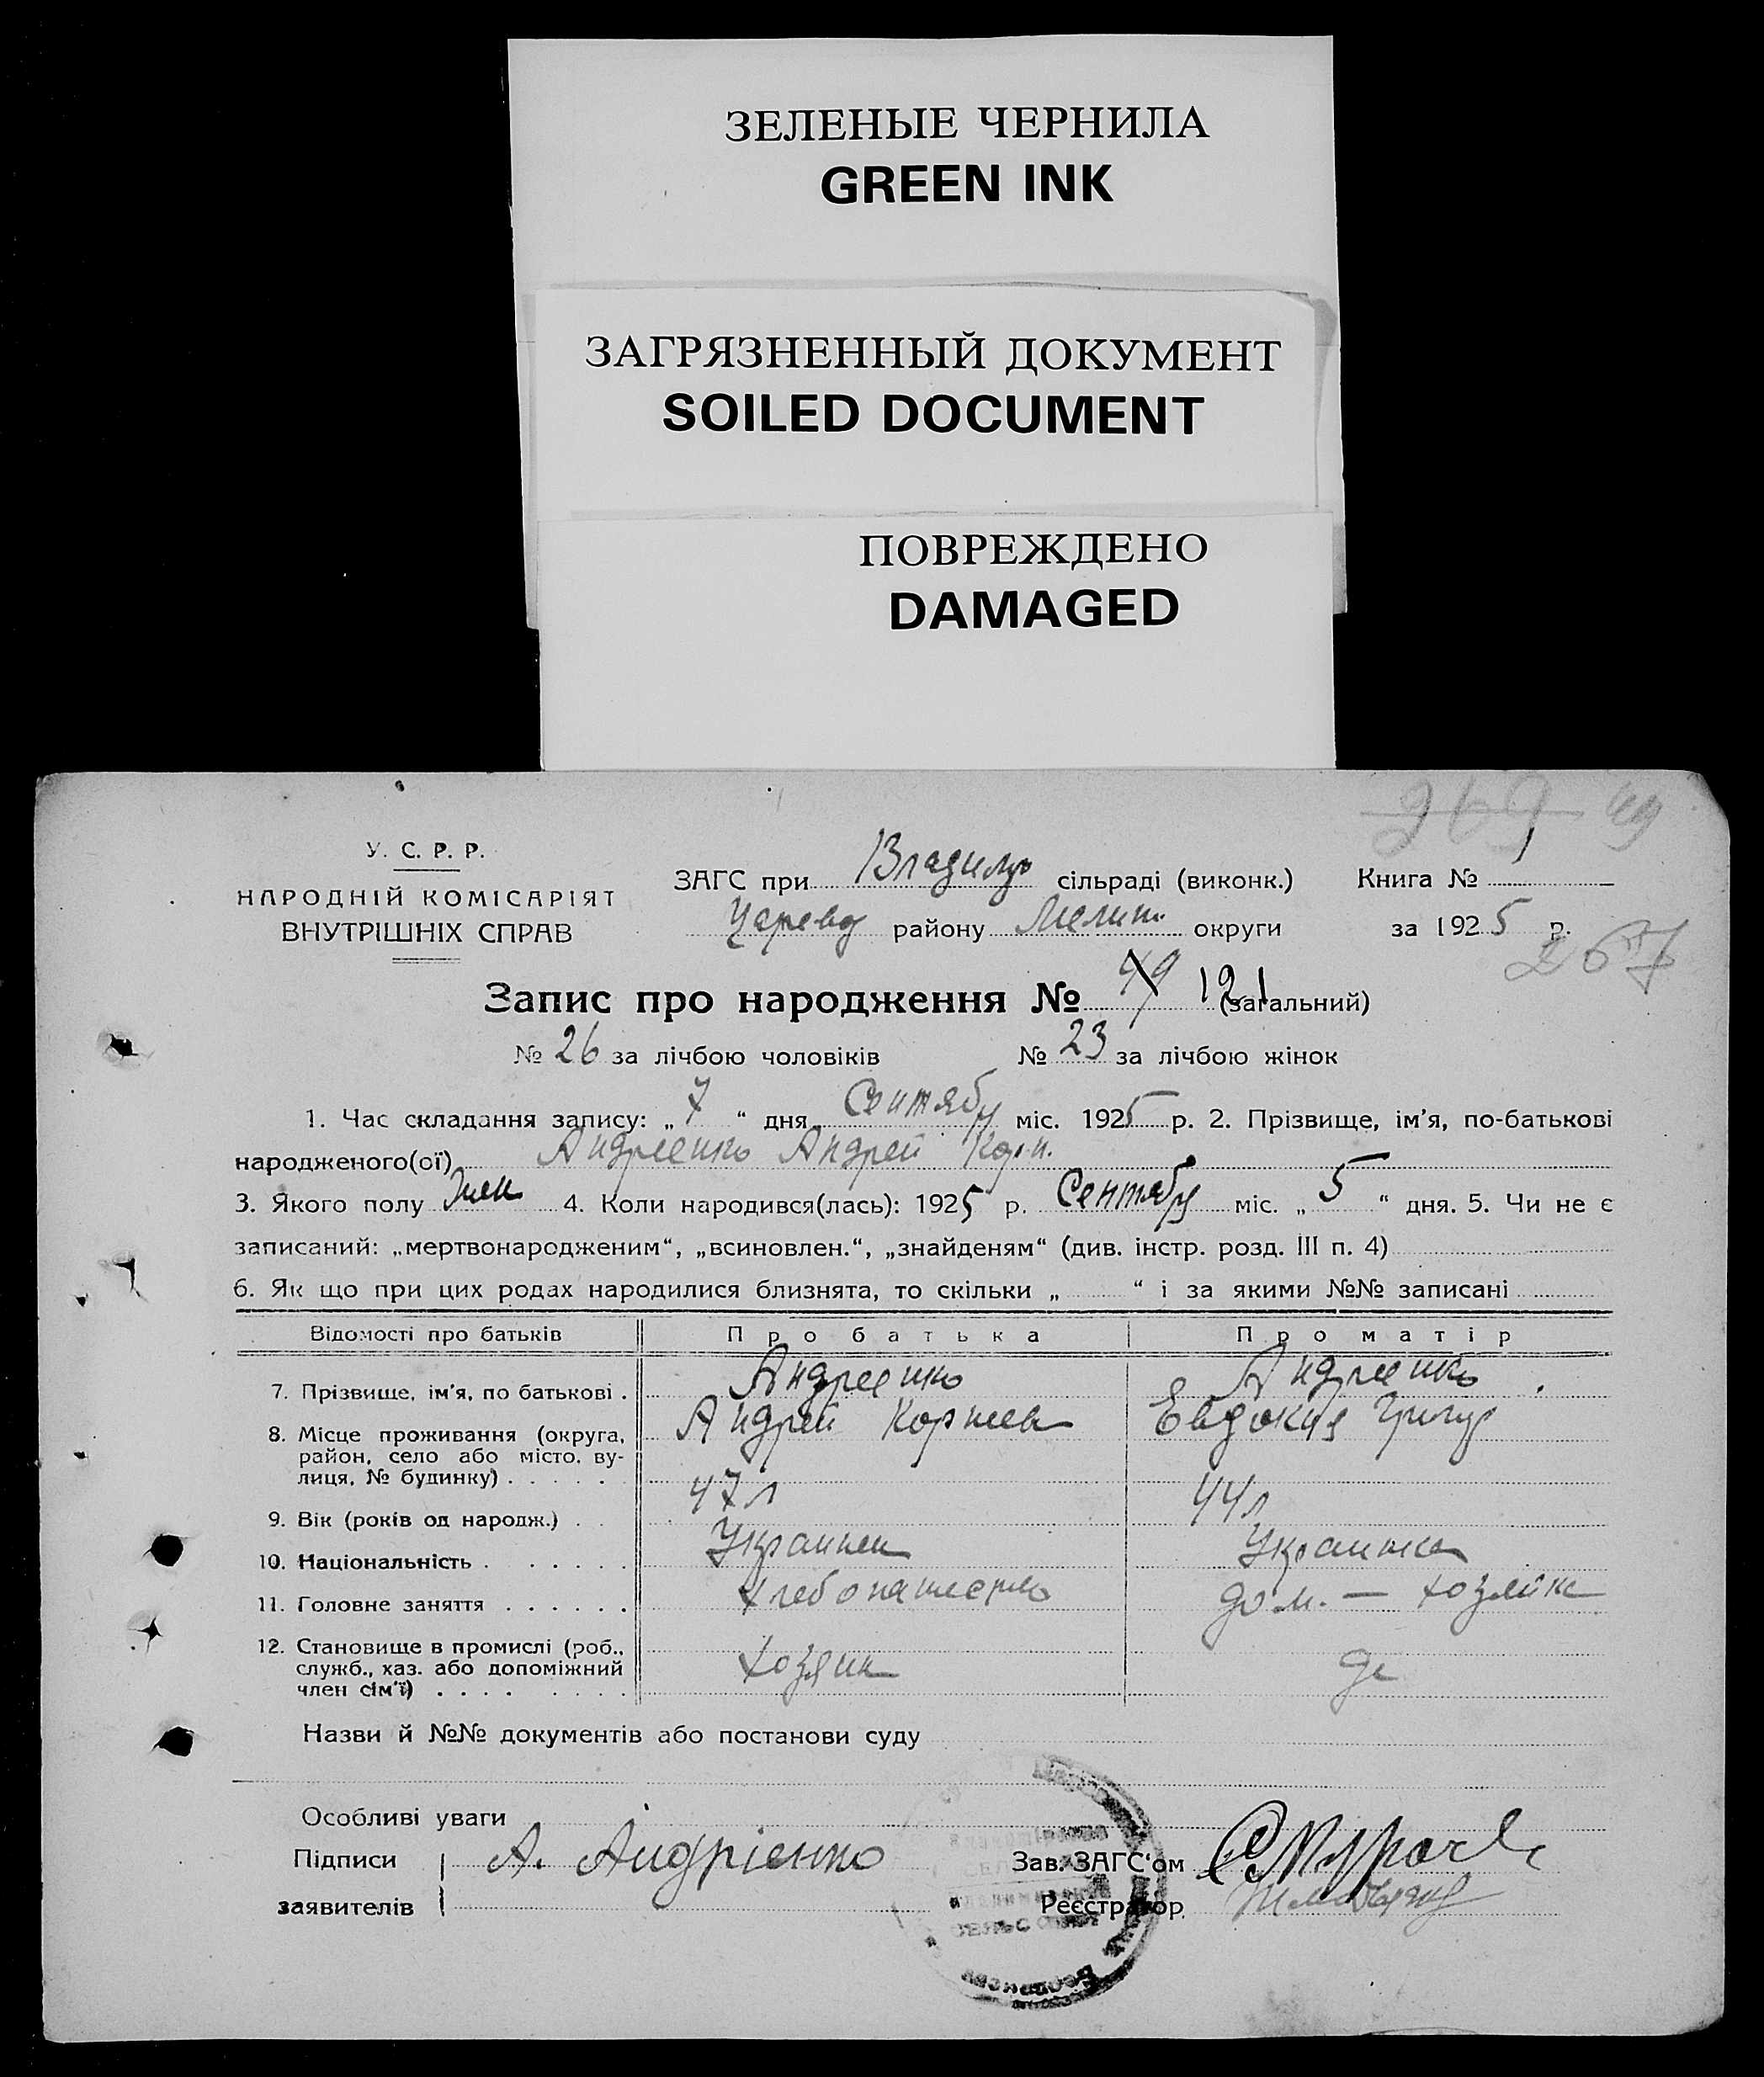 ЗЕЛЕНЫЕ ЧЕРНИЛА
GREEN INK
ЗАГРЯЗНЕННЫЙ ДОКУМЕНТ
SOILED DOCUMENT
ПОВРЕЖДЕНО
DAMAGED
269 49
У. С. Р. Р.
НАРОДНІЙ КОМІСАРІЯТ
ВНУТРІШНІХ СПРАВ
ЗАГС при Владимр сільраді (виконк.) Книга № 1
Царевод району Мелит. округи за 1925 р.
267
Запис про народження № 49 121 (загальний)
№ 26 за лічбою чоловіків № 23 за лічбою жінок
1. Час складання запису: „7“ дня Сентября міс. 1925 р. 2. Прізвище, ім'я, по-батькові
народженого(ої) Андреенко Андрей
3. Якого полу 4. Коли народився(лась): 1925 р. Сентября міс. „5“ дня. 5. Чи не є
записаний: „мертвонародженим“, „всиновлен.“, „знайденям“ (див. інстр. розд. III п. 4)
6. Як що при цих родах народилися близнята, то скільки „ “ і за якими №№ записані
Відомості про батьків Про батька Про матір
7. Прізвище, ім'я, по батькові . Андреенко Андреенко .
Андрей Корнеев Евдокия Григор
8. Місце проживання (округа,
район, село або місто, ву-
лиця, № будинку) . . . . .
47 л 44 л
9. Вік (років од народж.) . .
10. Національність . . . . . . Украинец Украинка
11. Головне заняття . . . . . . Хлебопашество дом. — хозяйка
12. Становище в промислі (роб.,
служб., хаз. або допоміжний
член сім'ї) . . . . . . . . Хозяин
Назви й №№ документів або постанови суду
Особливі уваги
Підписи А. Андрієнко Зав. ЗАГС'ом
заявителів Реєстратор